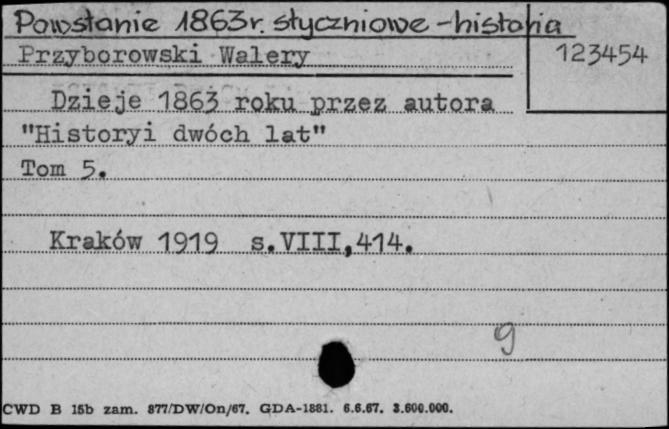 Powstanie 1863r. styczniowe - historia
Przyborowski Walery
123454
Dzieje 1863 roku przez autora
"Historyi dwóch lat"
Tom 5.
Kraków 1919 s.VIII,414.
g
CWD B 15b zam. 877/DW/On/67. GDA-1881. 6.6.67. 3.600.000.